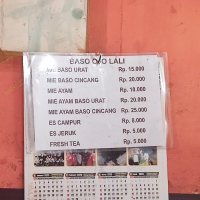 BASO OJO LALI
MIE BASO URAT Rp. 15.000
MIE BASO CINCANG Rp. 20.000
MIE AYAM Rp. 10.000
MIE AYAM BASO URAT Rp. 20.000
MIE AYAM BASO CINCANG Rp. 25.000
ES CAMPUR Rp. 8.000
ES JERUK Rp. 5.000
FRESH TEA Rp. 5.000